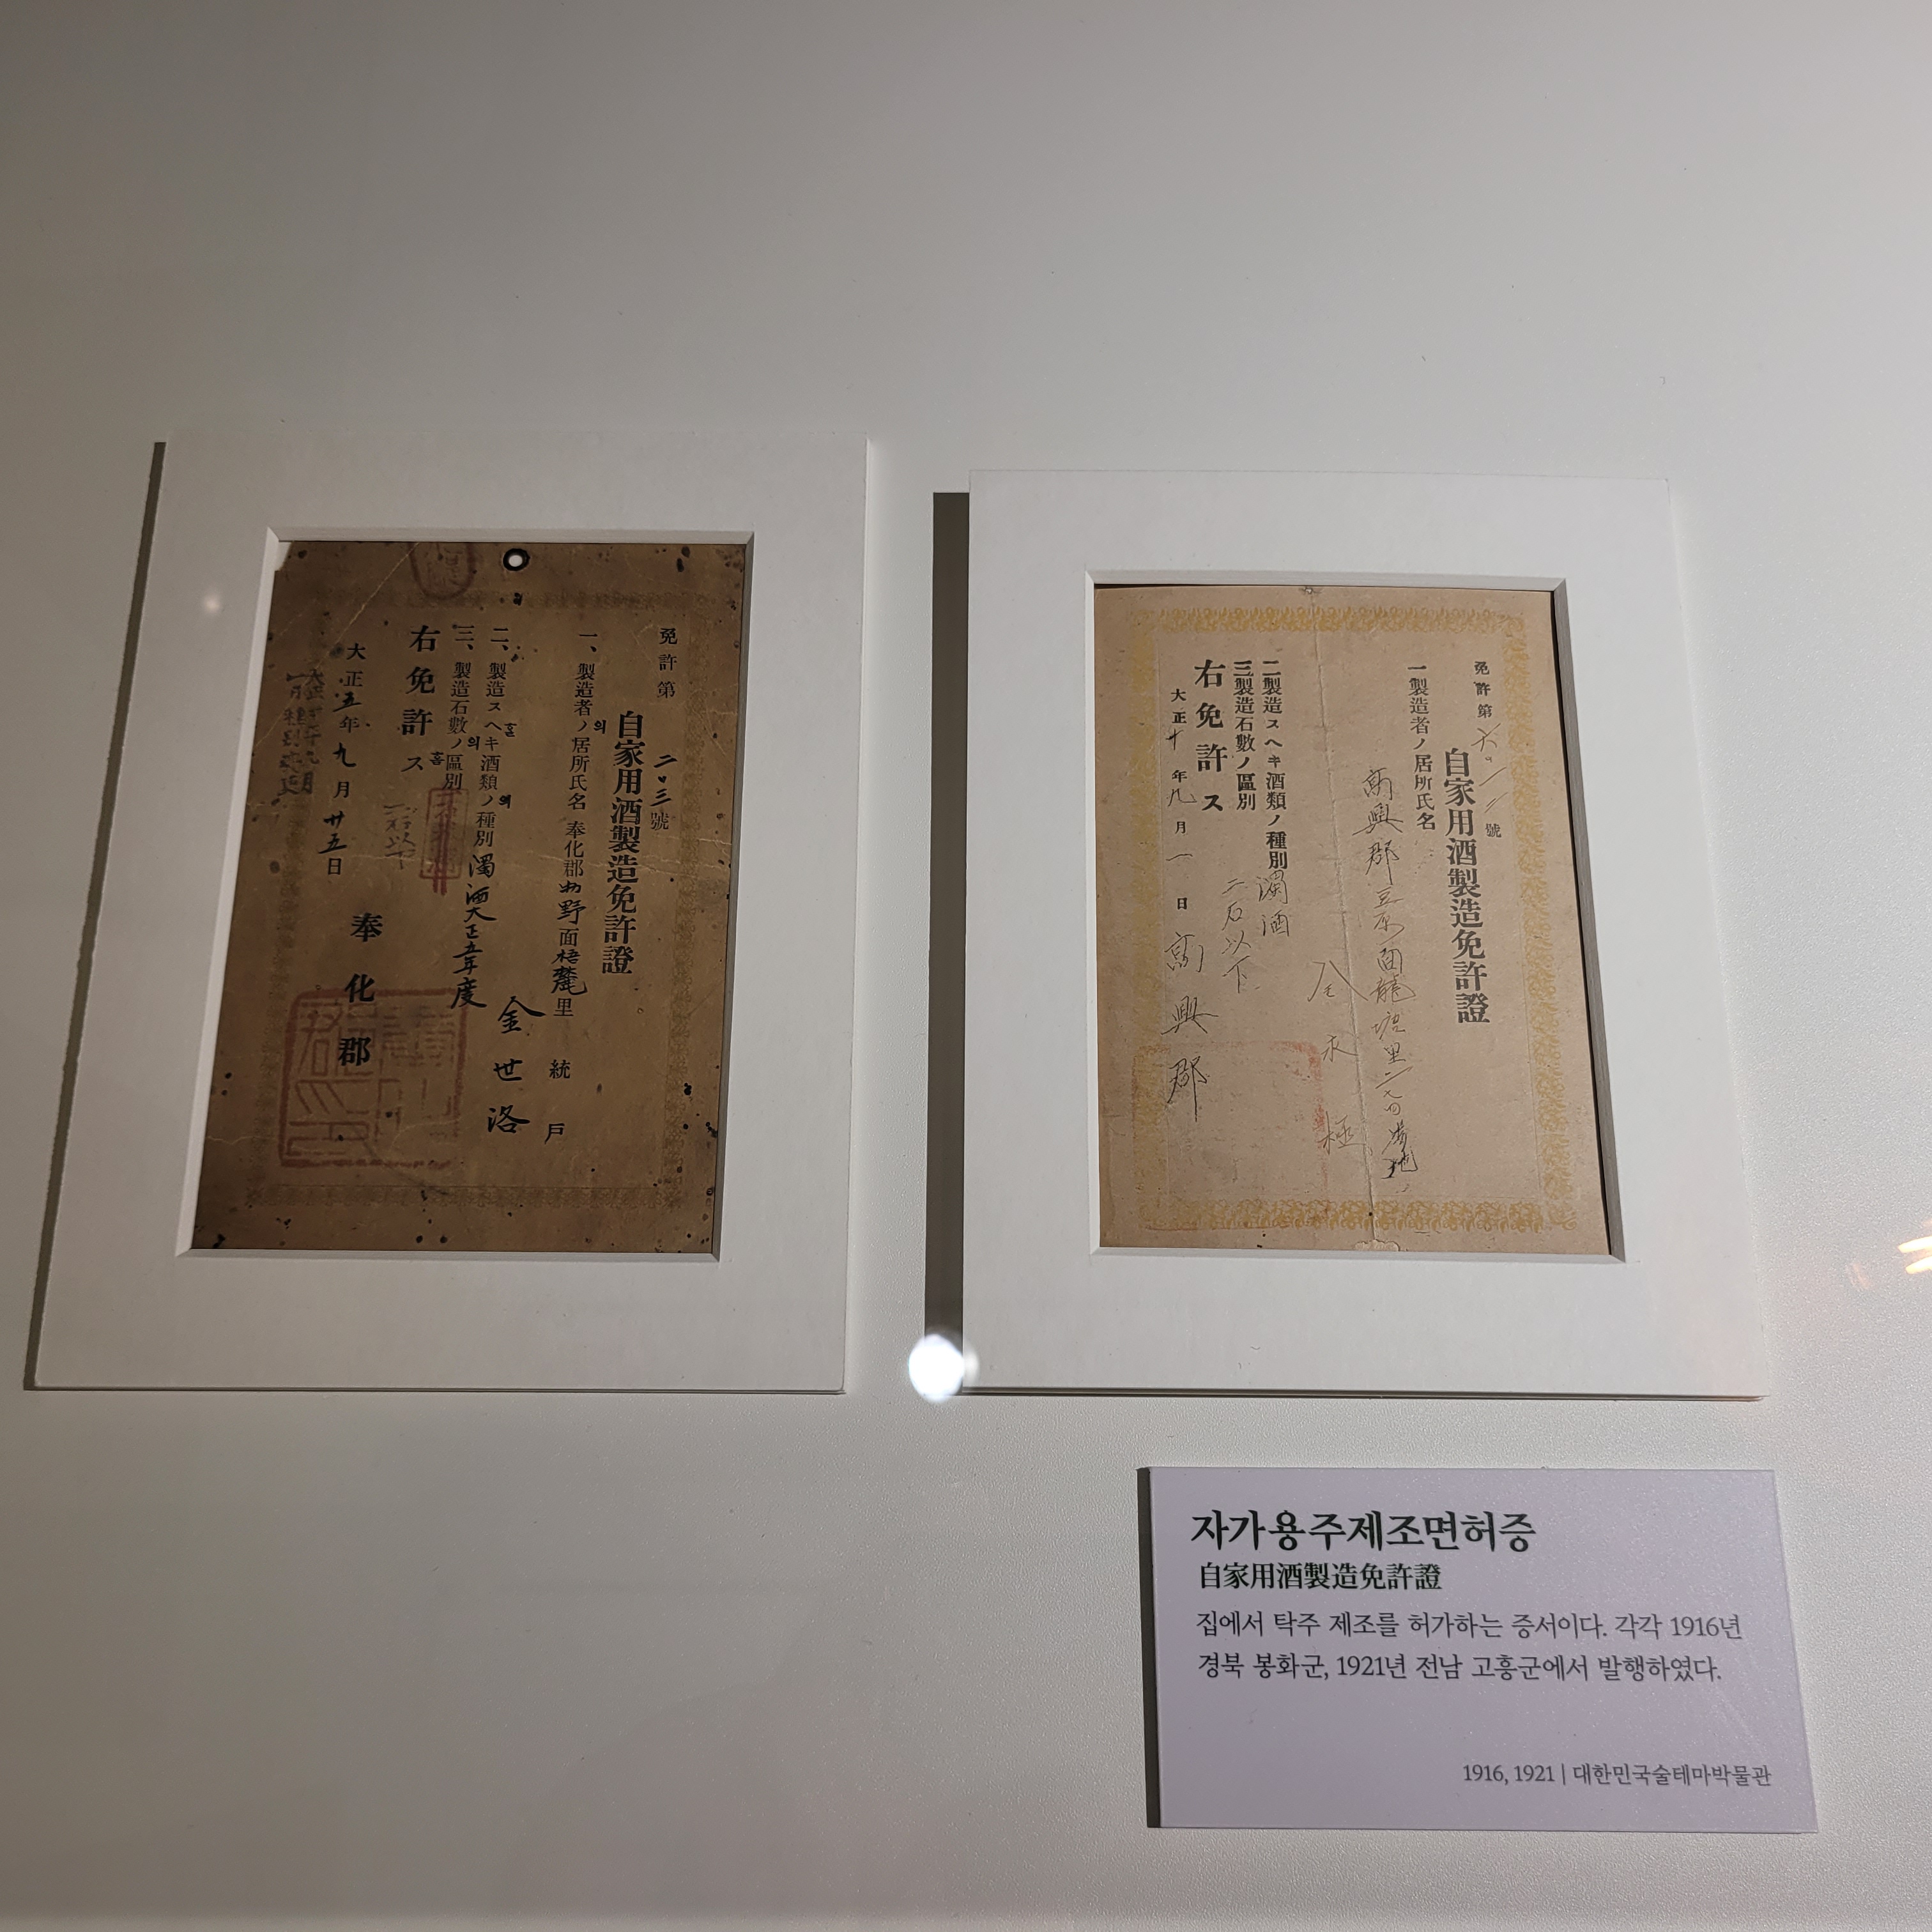 免許第二〇三號
自家用酒製造免許證
一、製造者ノ의居所氏名 奉化郡 野面梧麓里 統 戶
金世洛
二、製造スヘキ홀酒類ノ의種別 濁酒大正五年度
三、製造石數ノ의區別
右免許ス홈
大正五年九月廿五日
奉化郡
免許第 號
自家用酒製造免許證
一製造者ノ居所氏名
高興郡豆原面龍 里
永極
二製造スヘキ酒類ノ種別 濁酒
三製造石數ノ區別 二石以下
右免許ス
大正十年九月一日
高興郡
자가용주제조면허증
自家用酒製造免許證
집에서 탁주 제조를 허가하는 증서이다. 각각 1916년
경북 봉화군, 1921년 전남 고흥군에서 발행하였다.
1916, 1921 | 대한민국술테마박물관